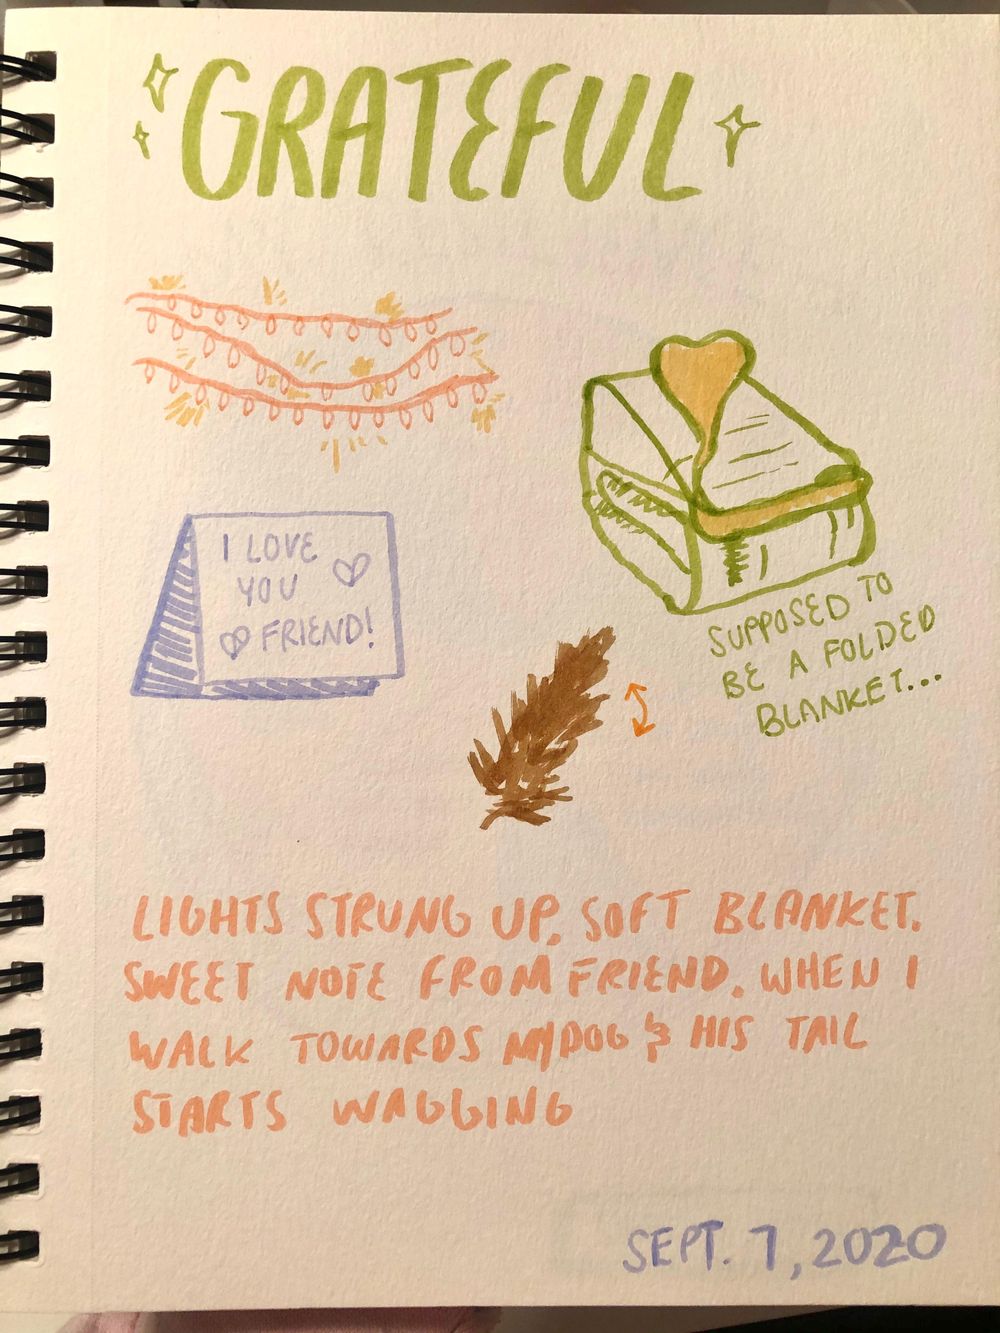 GRATEFUL
I LOVE
YOU
FRIEND!
SUPPOSED TO
BE A FOLDED
BLANKET...
LIGHTS STRUNG UP. SOFT BLANKET.
SWEET NOTE FROM FRIEND. WHEN I
WALK TOWARDS MY DOG & HIS TAIL
STARTS WAGGING
SEPT. 7, 2020